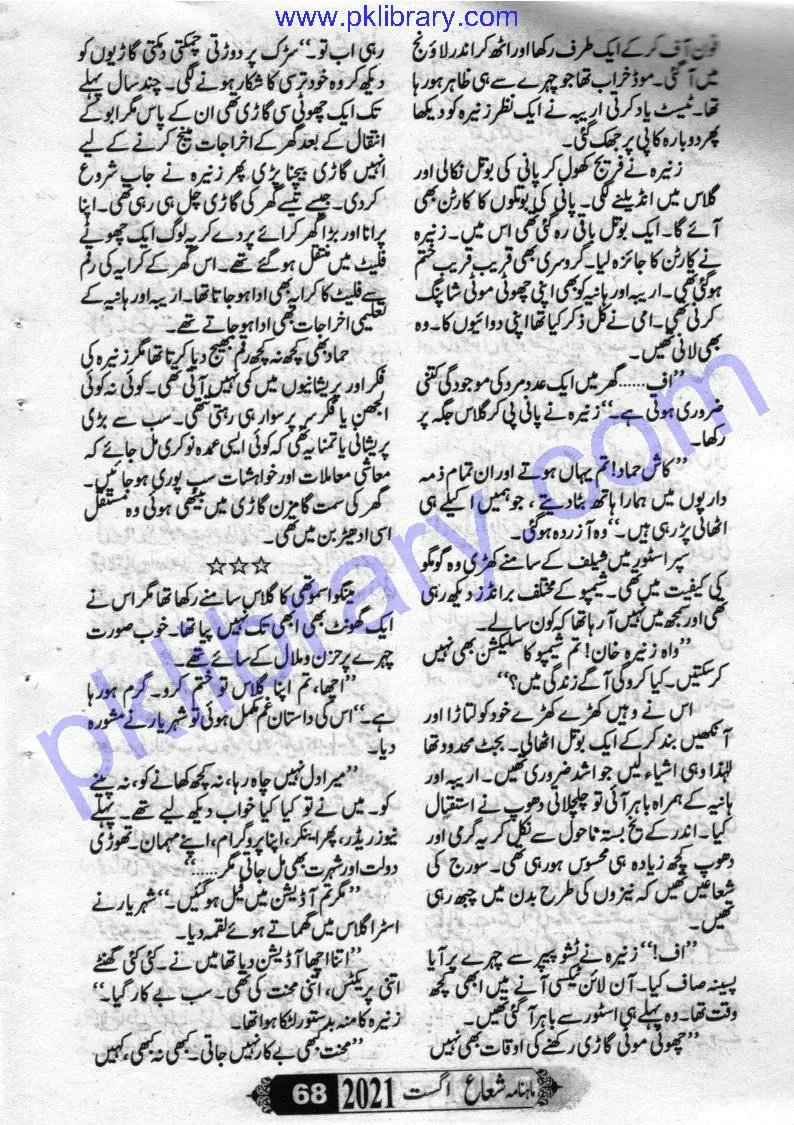 www.pklibrary.com
فون آف کر کے ایک طرف رکھا اور اٹھ کر اندر لاؤنج
میں آ گئی۔ موڈ خراب تھا جو چہرے سے ہی ظاہر ہو رہا
تھا۔ ٹیسٹ یاد کرتی اریبہ نے ایک نظر زنیرہ کو دیکھا
پھر دوبارہ کاپی پر جھک گئی۔
زنیرہ نے فریج کھول کر پانی کی بوتل نکالی اور
گلاس میں انڈیلنے لگی۔ پانی کی بوتلوں کا کارٹن بھی
آئے گا۔ ایک بوتل باقی رہ گئی تھی اس میں۔ زنیرہ
نے کارٹن کا جائزہ لیا۔ گروسری بھی قریب قریب ختم
ہو گئی تھی۔ اریبہ اور ہانیہ کو بھی اپنی چھوٹی موٹی شاپنگ
کرنی تھی۔ امی نے کل ذکر کیا تھا اپنی دوائیوں کا۔ وہ
بھی لانی تھیں۔
”اف...... گھر میں ایک عدد مرد کی موجودگی کتنی
ضروری ہوتی ہے۔“ زنیرہ نے پانی پی کر گلاس جگہ پر
رکھا۔
”کاش حماد! تم یہاں ہوتے اور ان تمام ذمہ
داریوں میں ہمارا ہاتھ بٹا دیتے، جو ہمیں اکیلے ہی
اٹھانی پڑ رہی ہیں۔“ وہ آزردہ ہو گئی۔
سپر اسٹور میں شیلف کے سامنے کھڑی وہ گومگو
کی کیفیت میں تھی۔ شیمپو کے مختلف برانڈز دیکھ رہی
تھی اور سمجھ میں نہیں آ رہا تھا کہ کون سا لے۔
”واہ زنیرہ خان! تم شیمپو کا سلیکشن بھی نہیں
کر سکتیں۔ کیا کرو گی آگے زندگی میں؟“
اس نے وہیں کھڑے کھڑے خود کو لتاڑا اور
آنکھیں بند کر کے ایک بوتل اٹھا لی۔ بجٹ محدود تھا
لہٰذا وہی اشیاء لیں جو اشد ضروری تھیں۔ اریبہ اور
ہانیہ کے ہمراہ باہر آئی تو چلچلاتی دھوپ نے استقبال
کیا۔ اندر کے یخ بستہ ماحول سے نکل کر یہ گرمی اور
دھوپ کچھ زیادہ ہی محسوس ہو رہی تھی۔ سورج کی
شعاعیں تھیں کہ نیزوں کی طرح بدن میں چبھ رہی
تھیں۔
”اف!“ زنیرہ نے ٹشو پیپر سے چہرے پر آیا
پسینہ صاف کیا۔ آن لائن ٹیکسی آنے میں ابھی کچھ
وقت تھا۔ وہ پہلے ہی اسٹور سے باہر آ گئی تھیں۔
”چھوٹی موٹی گاڑی رکھنے کی اوقات بھی نہیں
رہی اب تو۔“ سڑک پر دوڑتی چمکتی دمکتی گاڑیوں کو
دیکھ کر وہ خود ترسی کا شکار ہونے لگی۔ چند سال پہلے
تک ایک چھوٹی سی گاڑی تھی ان کے پاس مگر ابو کے
انتقال کے بعد گھر کے اخراجات مینج کرنے کے لیے
انہیں گاڑی بیچنا پڑی پھر زنیرہ نے جاب شروع
کر دی۔ جیسے تیسے گھر کی گاڑی چل ہی رہی تھی۔ اپنا
پرانا اور بڑا گھر کرائے پر دے کر یہ لوگ ایک چھوٹے
فلیٹ میں منتقل ہو گئے تھے۔ اس گھر کے کرایہ کی رقم
سے فلیٹ کا کرایہ بھی ادا ہو جاتا تھا۔ اریبہ اور ہانیہ کے
تعلیمی اخراجات بھی ادا ہو جاتے تھے۔
حماد بھی کچھ نہ کچھ رقم بھیج دیا کرتا تھا مگر زنیرہ کی
فکر اور پریشانیوں میں کمی نہیں آئی تھی۔ کوئی نہ کوئی
الجھن یا فکر سر پر سوار ہی رہتی تھی۔ سب سے بڑی
پریشانی یا تمنا یہ تھی کہ کوئی ایسی عمدہ نوکری مل جائے کہ
معاشی معاملات اور خواہشات سب پوری ہو جائیں۔
گھر کی سمت گامزن گاڑی میں بیٹھی ہوئی وہ مستقل
اسی ادھیڑ بن میں تھی۔
☆☆☆
مینگو اسموتھی کا گلاس سامنے رکھا تھا مگر اس نے
ایک گھونٹ بھی ابھی تک نہیں پیا تھا۔ خوب صورت
چہرے پر حزن و ملال کے سائے تھے۔
”اچھا، تم اپنا گلاس تو ختم کرو۔ گرم ہو رہا
ہے۔“ اس کی داستان غم مکمل ہوئی تو شہریار نے مشورہ
دیا۔
”میرا دل نہیں چاہ رہا، نہ کچھ کھانے کو، نہ پینے
کو۔ میں نے تو کیا کیا خواب دیکھ لیے تھے۔ پہلے
نیوز ریڈر، پھر اینکر، اپنا پروگرام، اپنے مہمان۔ تھوڑی
دولت اور شہرت بھی مل جاتی مگر......“
”مگر تم آڈیشن میں فیل ہو گئیں۔“ شہریار نے
اسٹرا گلاس میں گھماتے ہوئے لقمہ دیا۔
”اتنا اچھا آڈیشن دیا تھا میں نے۔ کئی کئی گھنٹے
اتنی پریکٹس، اتنی محنت کی تھی۔ سب بے کار گیا۔“
زنیرہ کا منہ بدستور لٹکا ہوا تھا۔
”محنت کبھی بے کار نہیں جاتی۔ کبھی نہ کبھی، کہیں
ماہنامہ شعاع اگست 2021 68
pklibrary.com